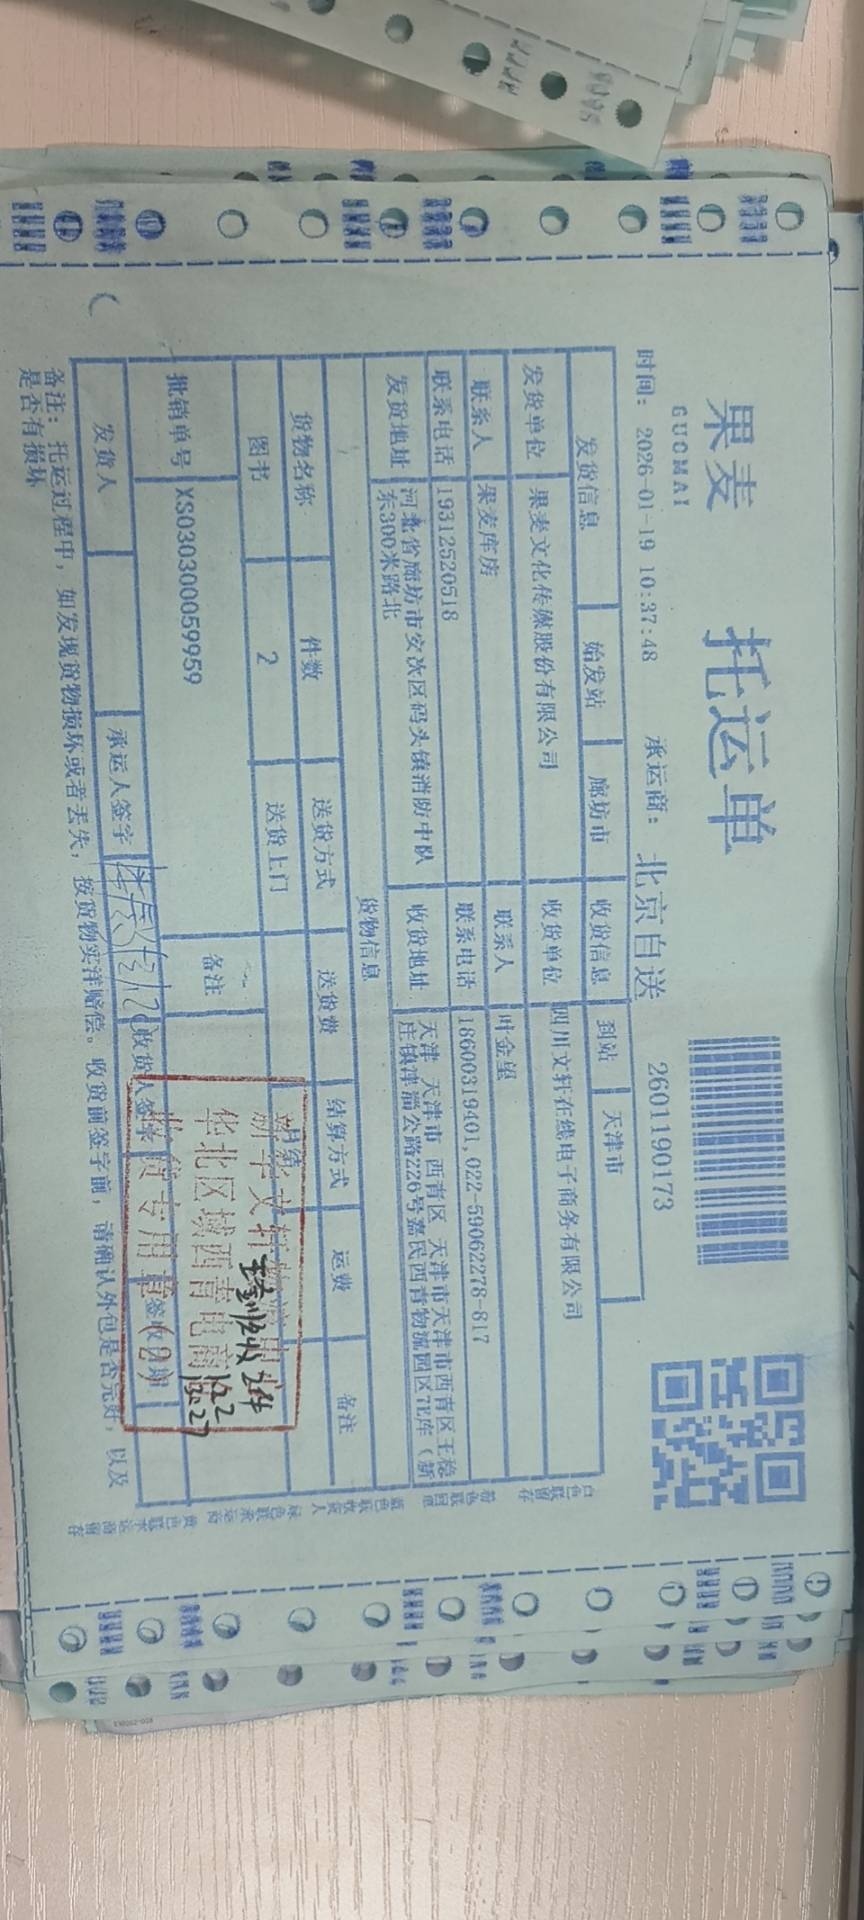 果麦
GUOMAI
托运单
时间: 2026-01-19 10:37:48 承运商: 北京自送 2601190173
发货信息 始发站 廊坊市 收货信息 到站 天津市
发货单位 果麦文化传媒股份有限公司 收货单位 四川文轩在线电子商务有限公司
联系人 果麦库房 联系人 叶金望
联系电话 19312520518 联系电话 18600319401,022-59062278-817
发货地址 河北省廊坊市安次区码头镇消防中队
东300米路北
收货地址 天津 天津市 西青区 天津市天津市西青区王稳
庄镇津淄公路226号嘉民西青物流园区7E库（新
货物信息
货物名称 件数 送货方式 送货费 结算方式 运费 备注
图书 2 送货上门 月结
批销单号 XS030300059959 备注
发货人 承运人签字 收货人签字 签收日期
新华文轩
华北区域西青电商
收货专用章(2)
备注: 托运过程中, 如发现货物损坏或者丢失, 按货物实洋赔偿。收货前签字前, 请确认外包是否完好, 以及
是否有损坏
白色联留存
粉色联回单
蓝色联收货人
绿色联承运商
黄色联承运商留存